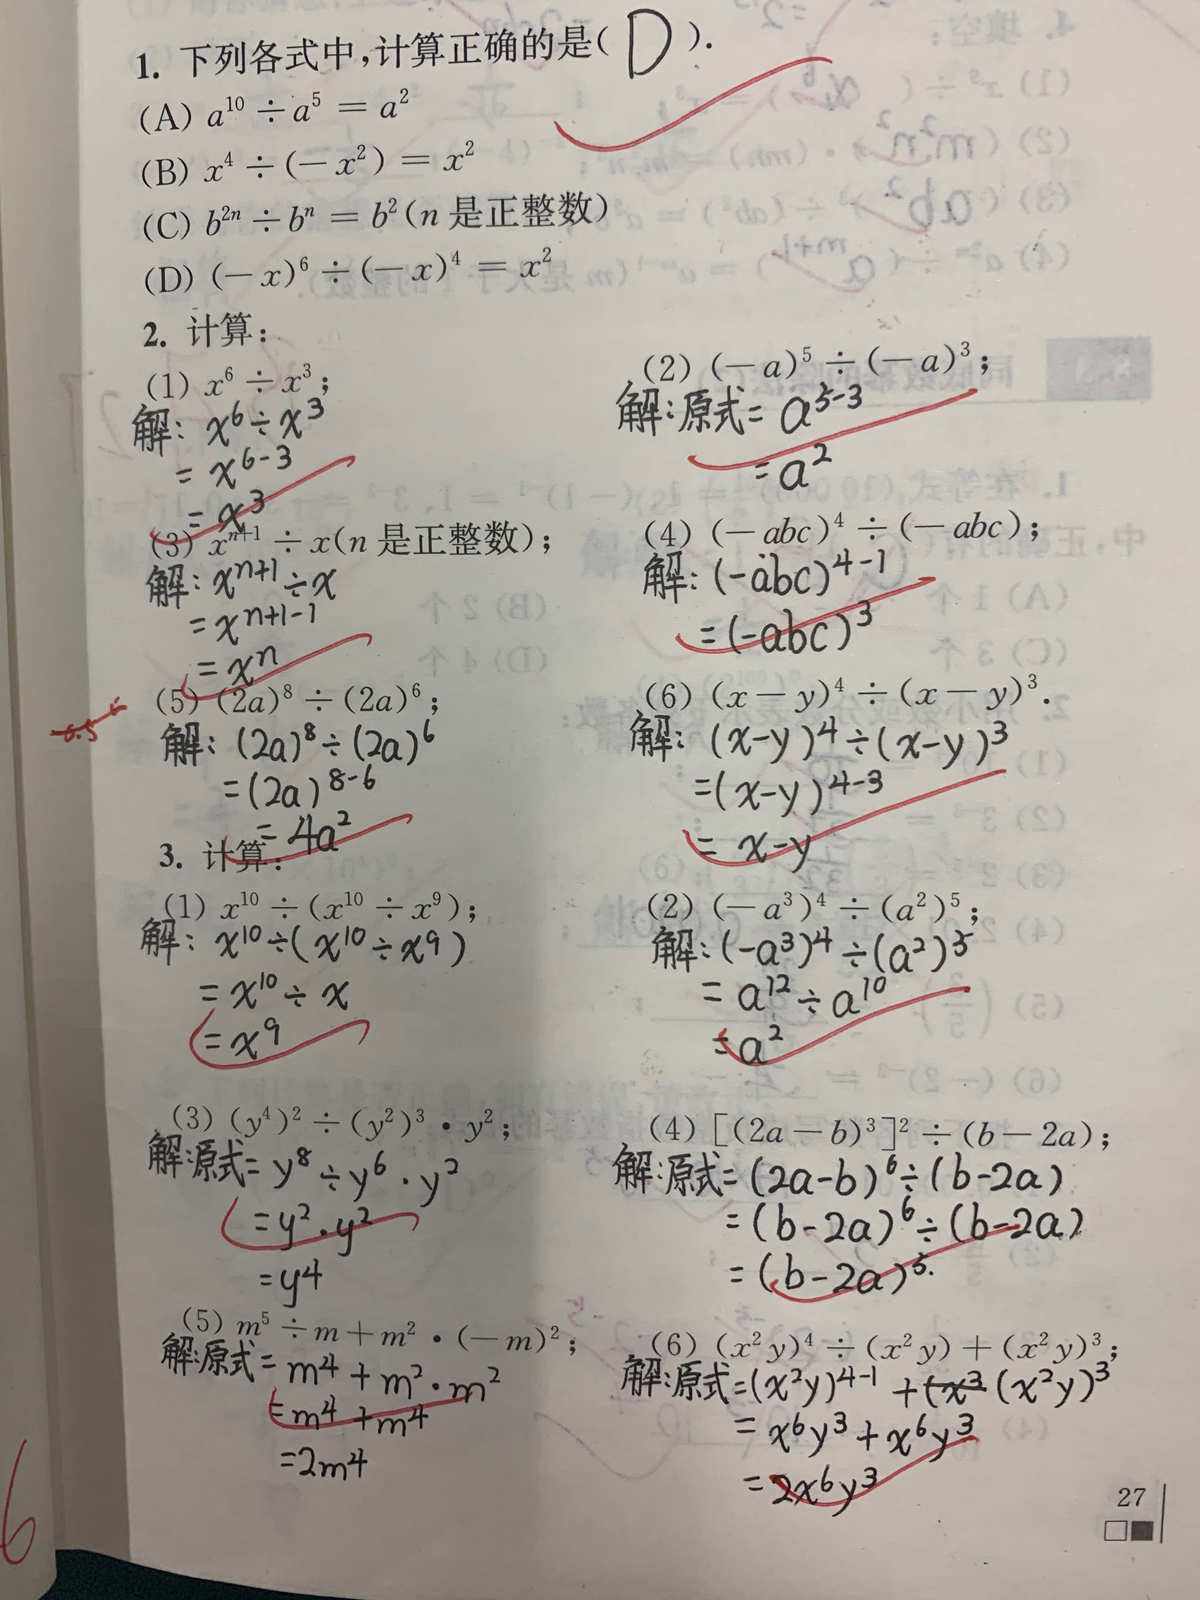 1. 下列各式中,计算正确的是( D ).
(A) a¹⁰ ÷ a⁵ = a²
(B) x⁴ ÷ (－x²) = x²
(C) b²ⁿ ÷ bⁿ = b² (n 是正整数)
(D) (－x)⁶ ÷ (－x)⁴ = x²
2. 计算:
(1) x⁶ ÷ x³;
解: x⁶ ÷ x³
= x⁶⁻³
= x³
(2) (－a)⁵ ÷ (－a)³;
解:原式= a⁵⁻³
= a²
(3) xⁿ⁺¹ ÷ x(n 是正整数);
解: xⁿ⁺¹ ÷ x
= xⁿ⁺¹⁻¹
= xⁿ
(4) (－abc)⁴ ÷ (－abc);
解: (-abc)⁴⁻¹
= (-abc)³
(5) (2a)⁸ ÷ (2a)⁶;
解: (2a)⁸ ÷ (2a)⁶
= (2a)⁸⁻⁶
= 4a²
(6) (x－y)⁴ ÷ (x－y)³.
解: (x-y)⁴ ÷ (x-y)³
= (x-y)⁴⁻³
= x-y
3. 计算:
(1) x¹⁰ ÷ (x¹⁰ ÷ x⁹);
解: x¹⁰ ÷ (x¹⁰ ÷ x⁹)
= x¹⁰ ÷ x
= x⁹
(2) (－a³)⁴ ÷ (a²)⁵;
解: (-a³)⁴ ÷ (a²)⁵
= a¹² ÷ a¹⁰
= a²
(3) (y⁴)² ÷ (y²)³ · y²;
解:原式= y⁸ ÷ y⁶ · y²
= y² · y²
= y⁴
(4) [(2a－b)³]² ÷ (b－2a);
解:原式= (2a-b)⁶ ÷ (b-2a)
= (b-2a)⁶ ÷ (b-2a)
= (b-2a)⁵.
(5) m⁵ ÷ m + m² · (－m)²;
解:原式= m⁴ + m² · m²
= m⁴ + m⁴
= 2m⁴
(6) (x²y)⁴ ÷ (x²y) + (x²y)³;
解:原式= (x²y)⁴⁻¹ + (x²y)³
= x⁶y³ + x⁶y³
= 2x⁶y³
27
6